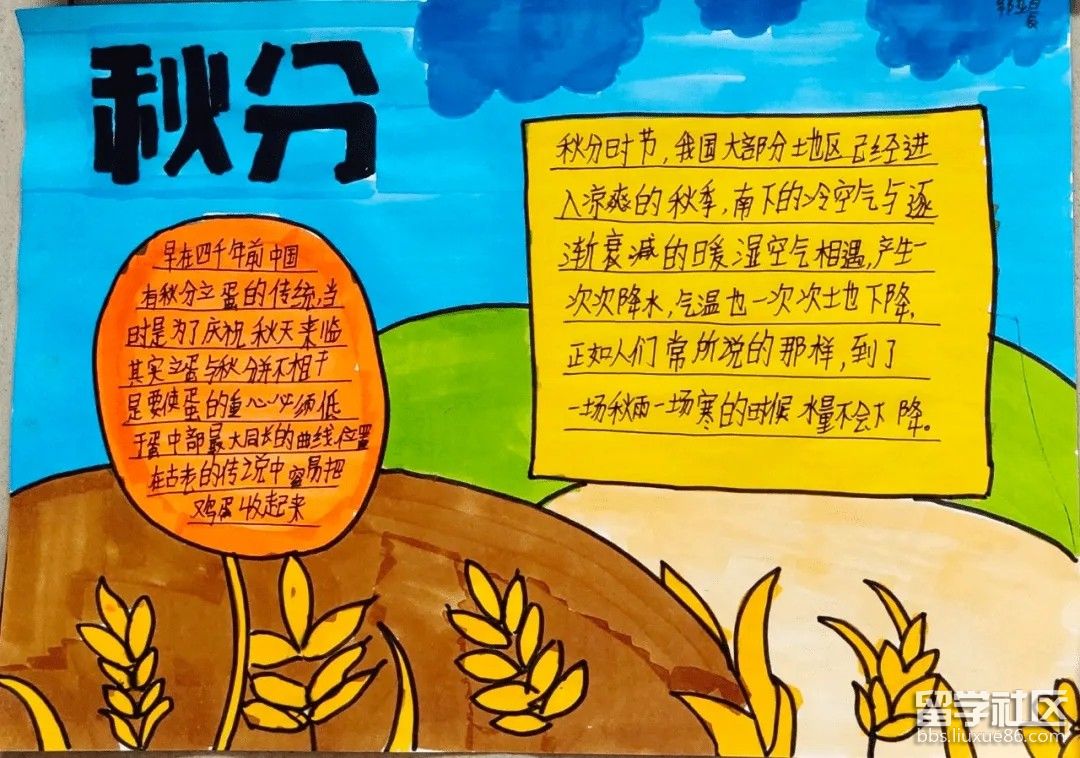 秋分
早在四千年前中国
有秋分立蛋的传统,当
时是为了庆祝秋天来临
其实立蛋与秋分并不相干
是要使蛋的重心必须低
于蛋中部最大周长的曲线位置
在古老的传说中容易把
鸡蛋收起来
秋分时节,我国大部分土地区已经进
入凉爽的秋季,南下的冷空气与逐
渐衰减的暖湿空气相遇,产生一
次次降水,气温也一次次土地下降,
正如人们常所说的那样,到了
一场秋雨一场寒的时候 水量不会下降。
留学社区
bbs.liuxue86.com